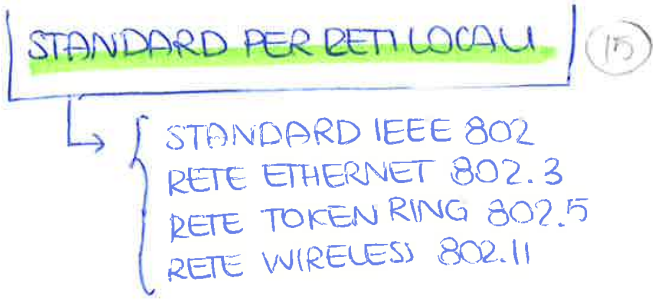 STANDARD PER RETI LOCALI
15
STANDARD IEEE 802
RETE ETHERNET 802.3
RETE TOKEN RING 802.5
RETE WIRELESS 802.11